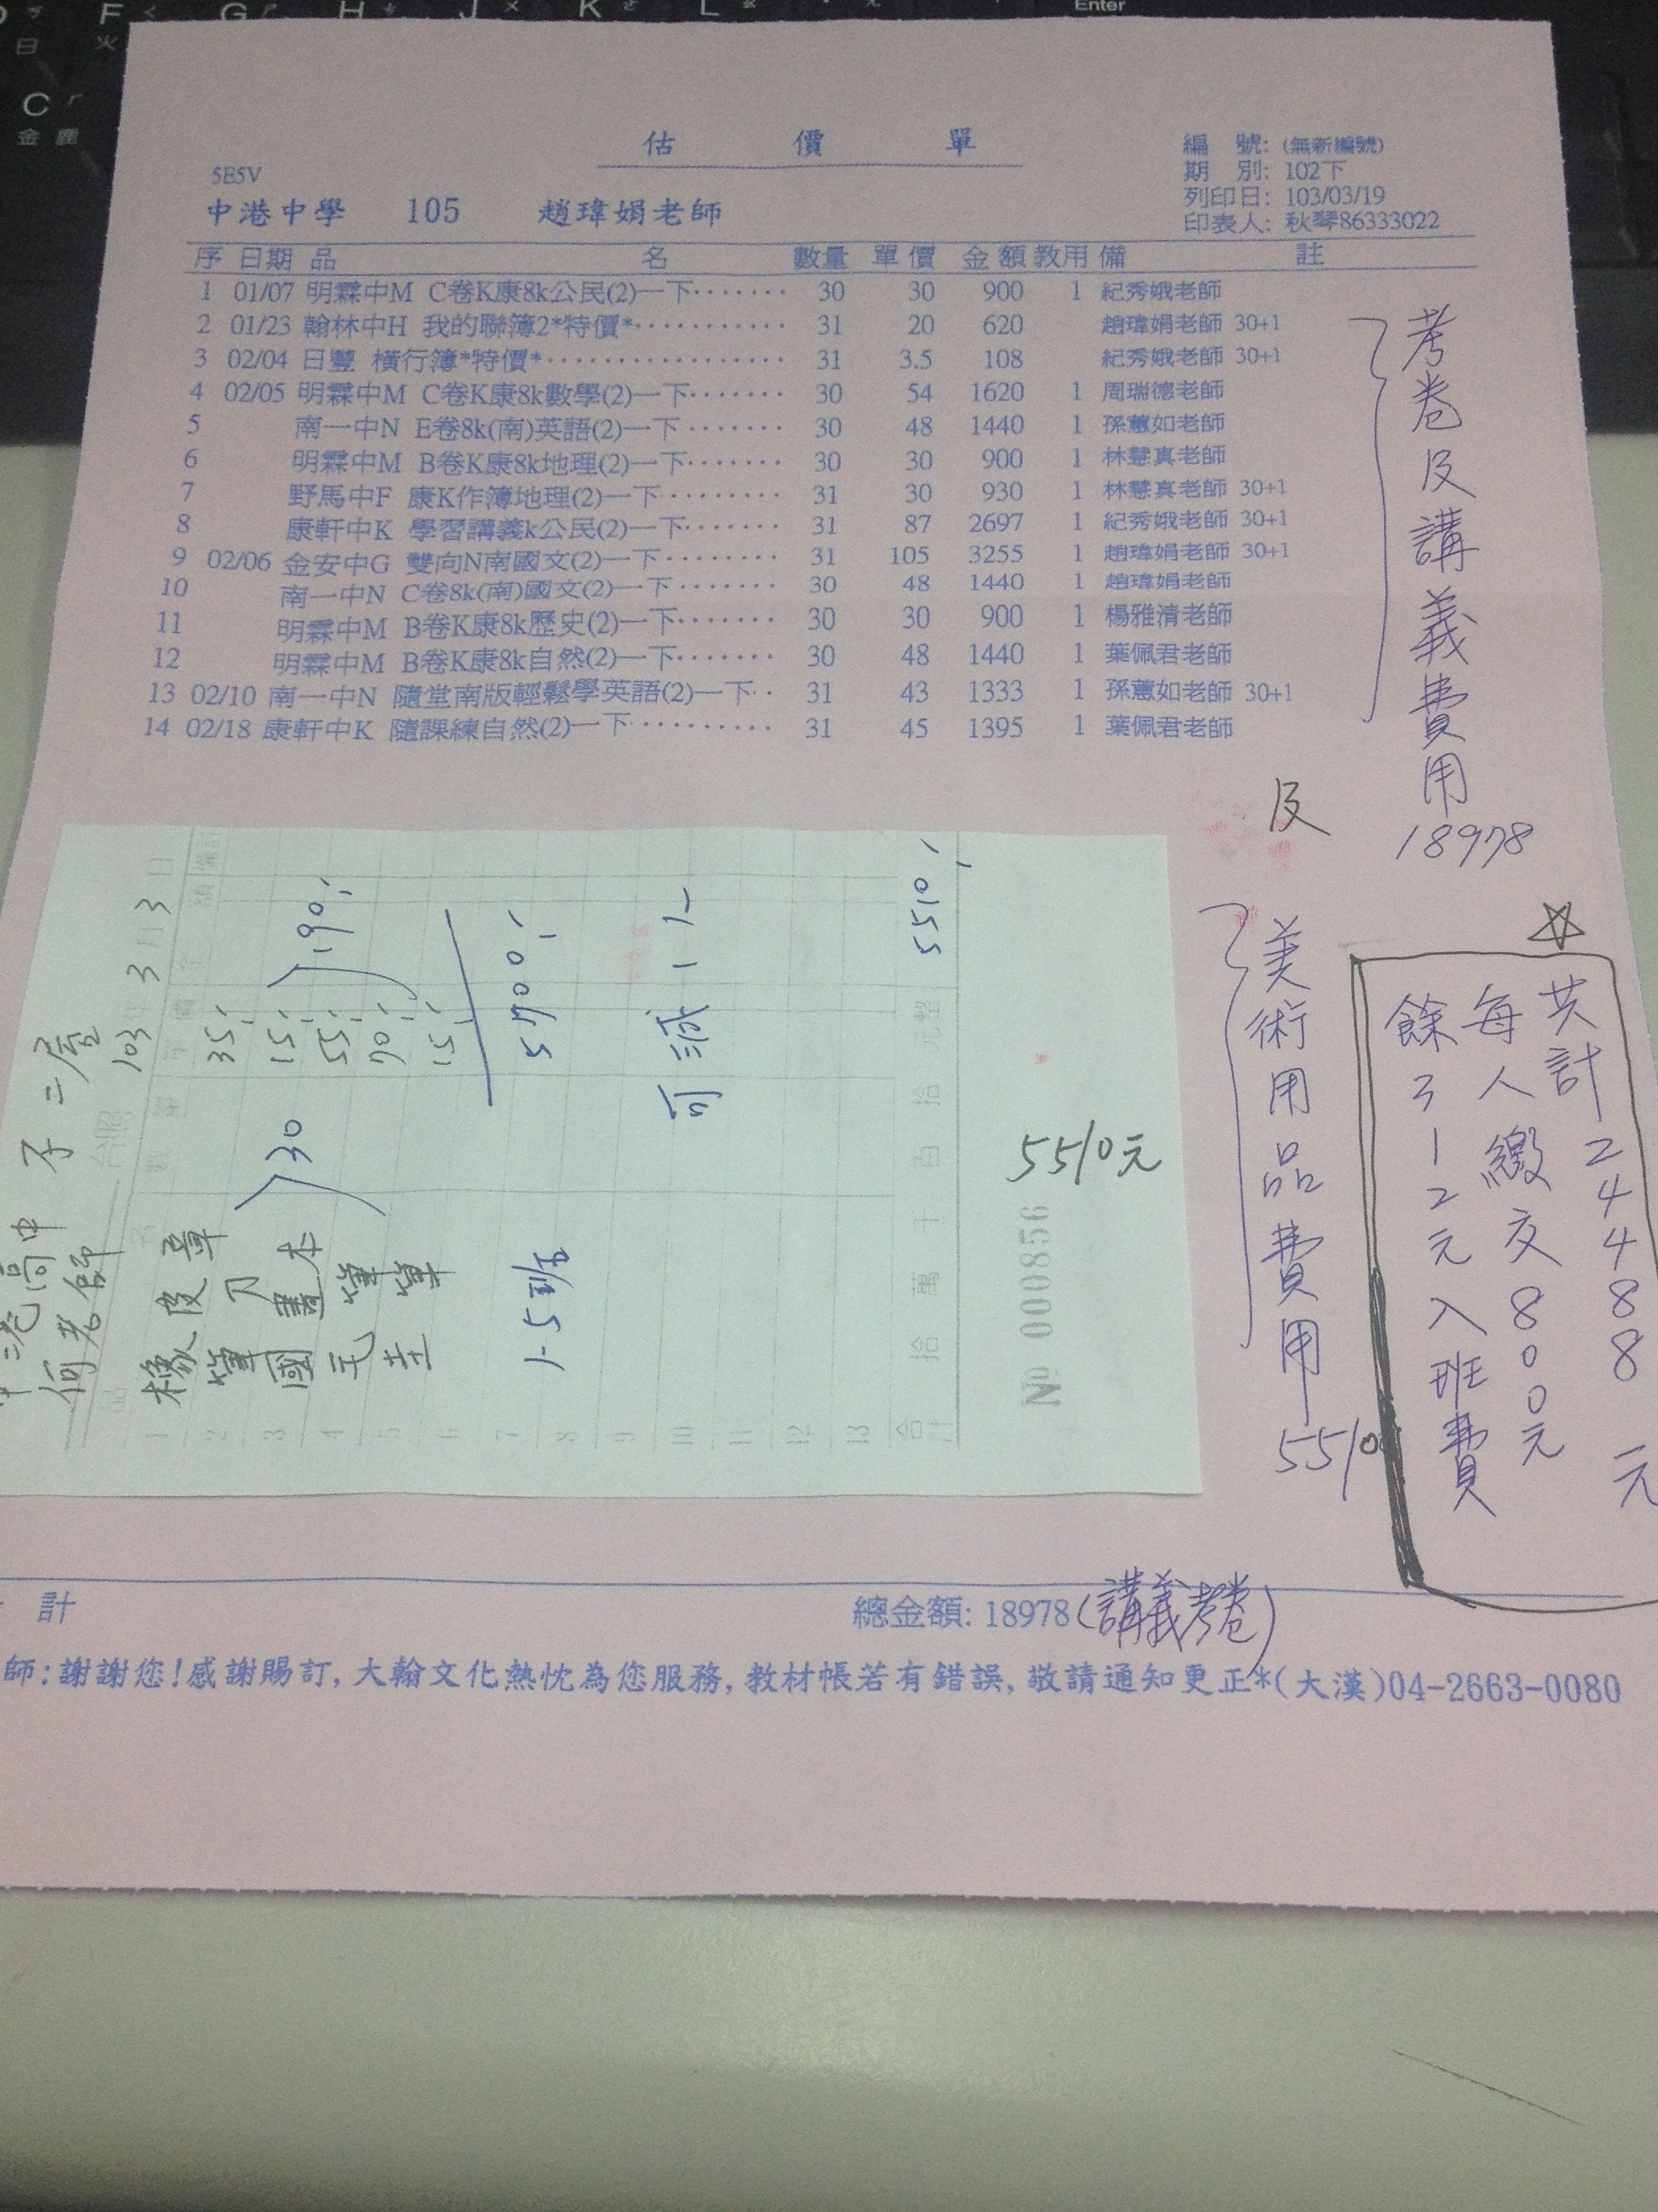 F G H J K L Enter
火
C
金
估 價 單
5E5V
編 號: (無新編號)
期 別: 102下
列印日: 103/03/19
印表人: 秋琴86333022
中港中學 105 趙瑋娟老師
序 日期 品 名 數量 單價 金額 教用 備 註
1 01/07 明霖中M C卷K康8k公民(2)一下······· 30 30 900 1 紀秀娥老師
2 01/23 翰林中H 我的聯簿2*特價*··········· 31 20 620 趙瑋娟老師 30+1
3 02/04 日豐 橫行簿*特價*················· 31 3.5 108 紀秀娥老師 30+1
4 02/05 明霖中M C卷K康8k數學(2)一下······· 30 54 1620 1 周瑞德老師
5 南一中N E卷8k(南)英語(2)一下 ······· 30 48 1440 1 孫蕙如老師
6 明霖中M B卷K康8k地理(2)一下······· 30 30 900 1 林慧真老師
7 野馬中F 康K作簿地理(2)一下········ 31 30 930 1 林慧真老師 30+1
8 康軒中K 學習講義k公民(2)一下······· 31 87 2697 1 紀秀娥老師 30+1
9 02/06 金安中G 雙向N南國文(2)一下········ 31 105 3255 1 趙瑋娟老師 30+1
10 南一中N C卷8k(南)國文(2)一下 ······· 30 48 1440 1 趙瑋娟老師
11 明霖中M B卷K康8k歷史(2)一下······· 30 30 900 1 楊雅清老師
12 明霖中M B卷K康8k自然(2)一下······· 30 48 1440 1 葉佩君老師
13 02/10 南一中N 隨堂南版輕鬆學英語(2)一下·· 31 43 1333 1 孫蕙如老師 30+1
14 02/18 康軒中K 隨課練自然(2)一下·········· 31 45 1395 1 葉佩君老師
考卷及講義費用
18978
及
美術用品費用
5510
共計24488元
每人繳交800元
餘312元入班費
中港高中
何老師
103 年 3 月 3 日
橡皮章 35
筆刀 15
國畫本 55
毛筆 70
15
30
190
5700
1-5班
可減
合計 拾 萬 千 百 拾 元整 5510
No 000856
5510元
計
總金額: 18978(講義考卷)
師:謝謝您!感謝賜訂, 大翰文化熱忱為您服務, 教材帳若有錯誤, 敬請通知更正*(大漢)04-2663-0080